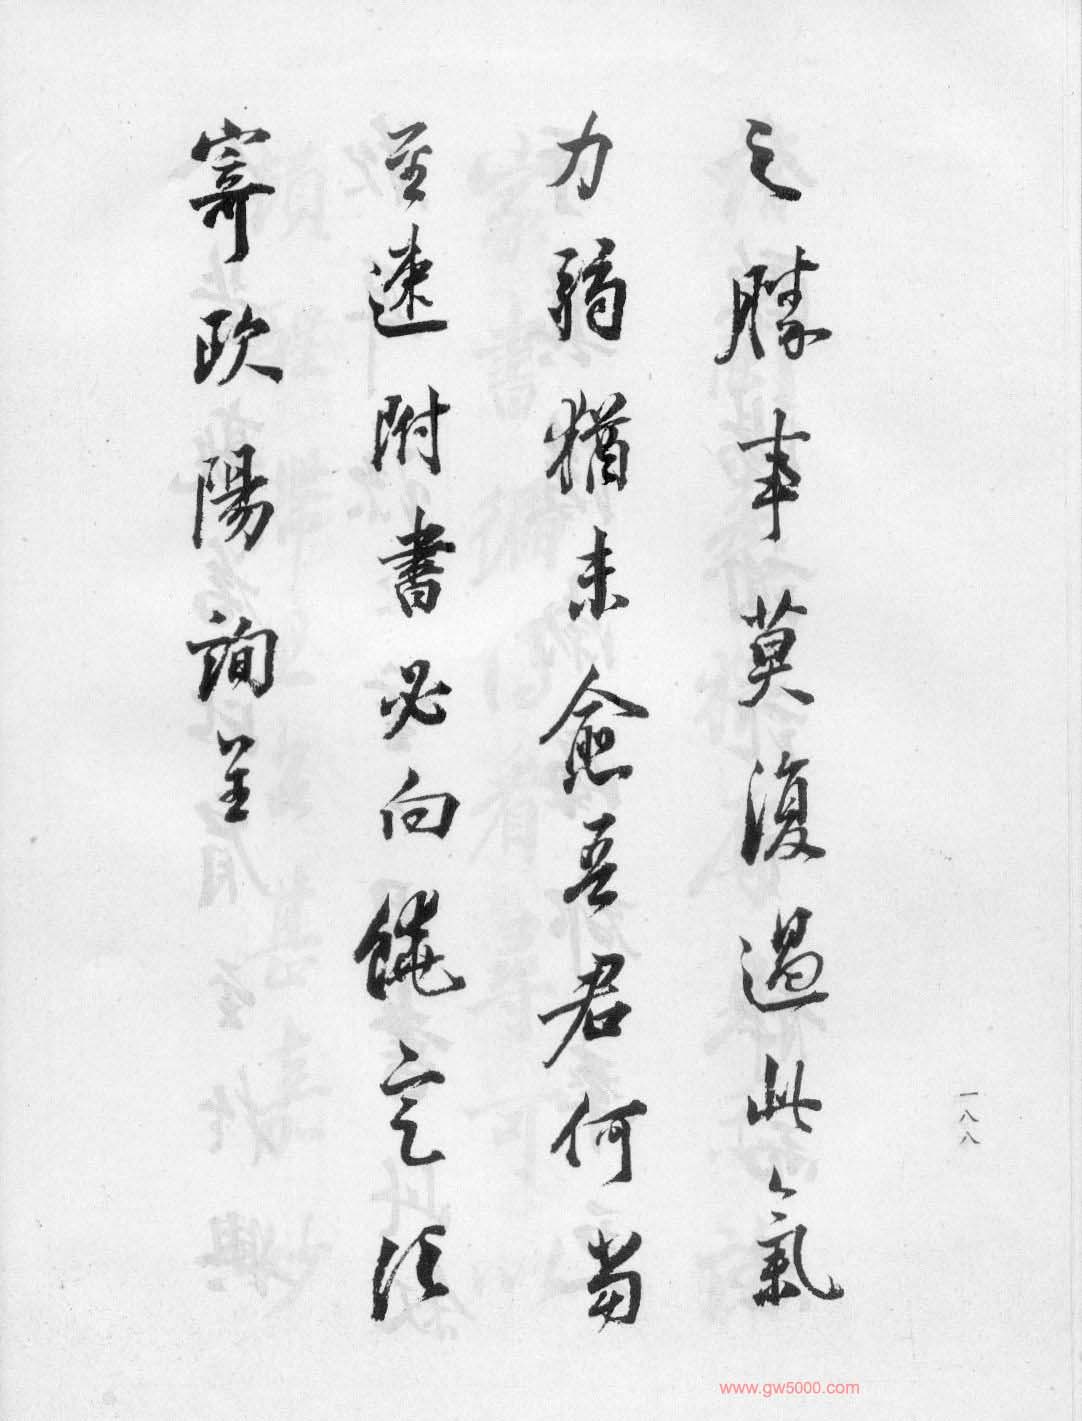 之勝事莫復過此氣
力弱猶未愈吾君何當
至速附書必向饒定須
寄歐陽詢呈
一八八
www.gw5000.com